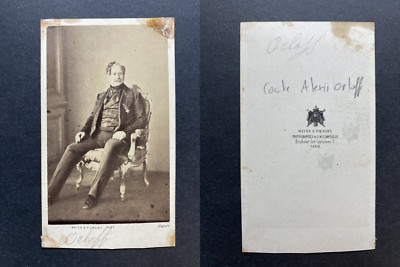 MAYER & PIERSON PHOT.
Orloff
Orloff
Comte Alexis Orloff
MAYER & PIERSON
PHOTOGRAPHES DE S.M. L'EMPEREUR
Boulevart des Capucines, 3
PARIS